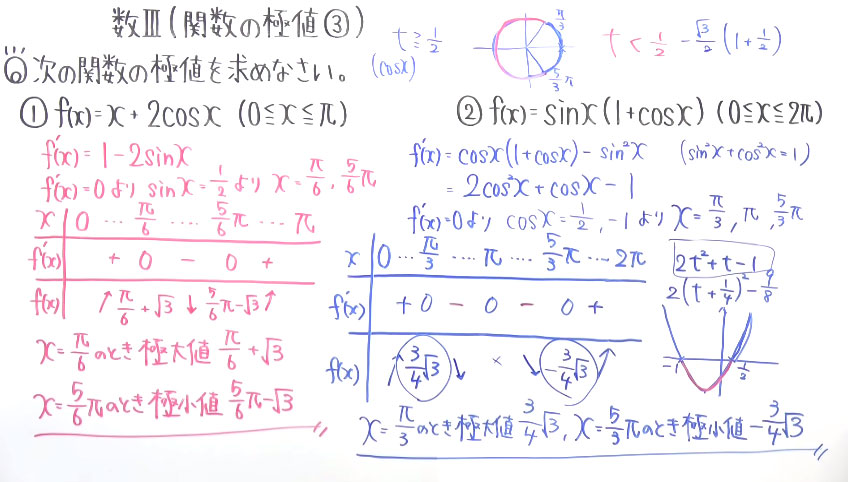 数Ⅲ(関数の極値③)
t≧1/2
(cosx)
π/3
5/3π
t<1/2 -√3/2(1+1/2)
⑥次の関数の極値を求めなさい。
① f(x)=x+2cosx (0≦x≦π)
f'(x)=1-2sinx
f'(x)=0より sinx=1/2より x=π/6, 5/6π
x 0 … π/6 …. 5/6π … π
f'(x) + 0 - 0 +
f(x) ↗ π/6+√3 ↓ 5/6π-√3 ↗
x=π/6のとき極大値 π/6+√3
x=5/6πのとき極小値 5/6π-√3
② f(x)=sinx(1+cosx) (0≦x≦2π)
f'(x)=cosx(1+cosx)-sin²x (sin²x+cos²x=1)
=2cos²x+cosx-1
f'(x)=0より cosx=1/2, -1より x=π/3, π, 5/3π
x 0 … π/3 …. π …. 5/3π … 2π
f'(x) + 0 - 0 - 0 +
f(x) ↗ 3/4√3 ↘ × ↘ -3/4√3 ↗
2t²+t-1
2(t+1/4)²-9/8
-1 1/2
x=π/3のとき極大値 3/4√3, x=5/3πのとき極小値 -3/4√3